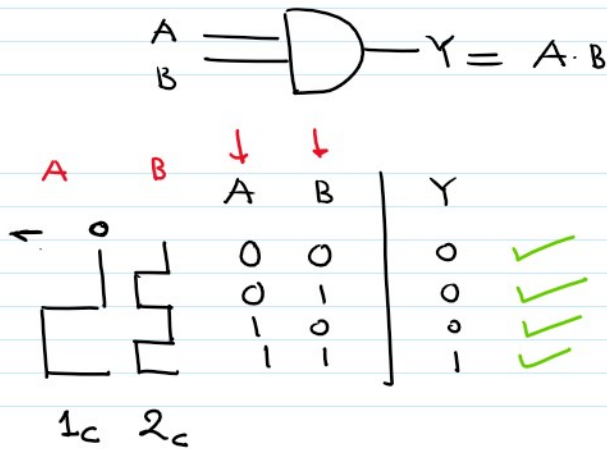 A
B
Y = A.B
A B A B Y
0
0 0 0
0 1 0
1 0 0
1 1 1
1c 2c